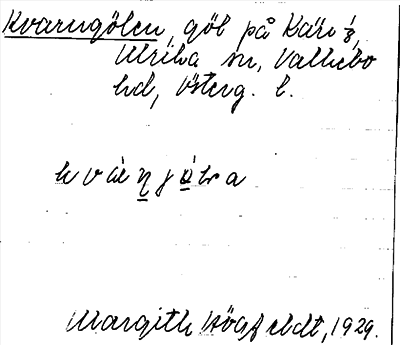 Kvarngölen, göl på Kärr ⅓,
Ulrika sn, Vallebo
hd, Österg. l.
kvàŋjöLra
Margith Högfeldt, 1929.